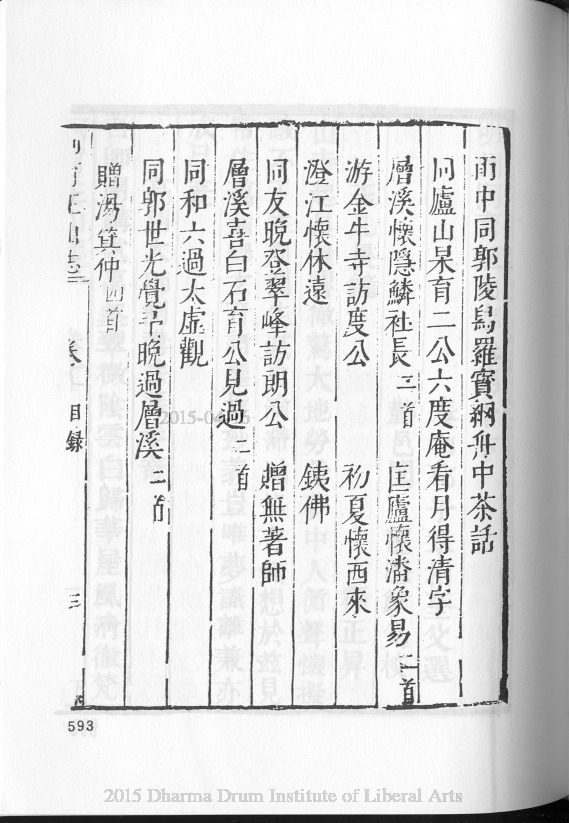 雨中同郭陵舄羅賓綱舟中茶話
同廬山杲育二公六度庵看月得清字
層溪懷隱鱗社長二首 匡廬懷潘象易二首
游金牛寺訪度公 初夏懷西來
澄江懷休遠 銕佛
同友晚登翠峰訪朗公 贈無著師
層溪喜白石育公見過二首
同和六過太虛觀
同郭世光覺于晚過層溪二首
贈湯箕仲四首
山志 目錄 三
593
2015-04-
2015 Dharma Drum Institute of Liberal Arts